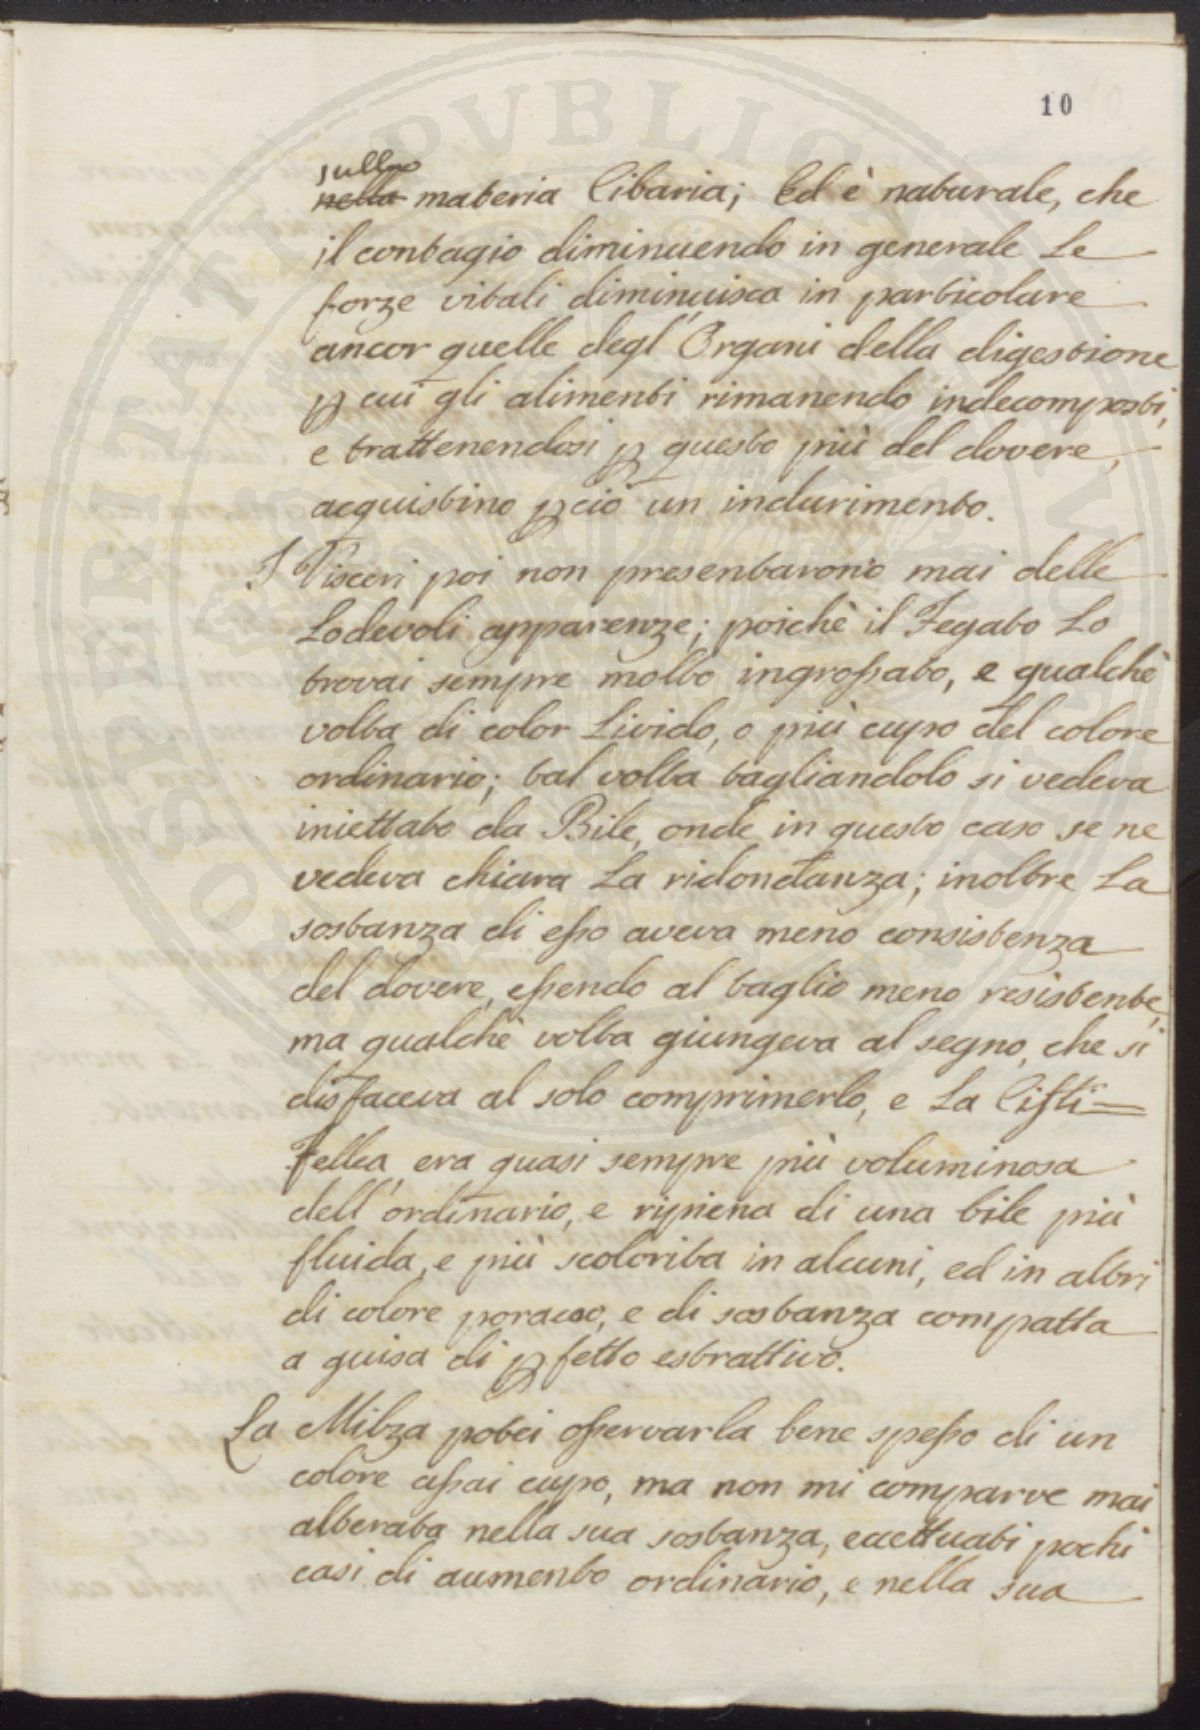 10
sulla
nella materia Cibaria; Ed è naturale, che
il contagio diminuendo in generale Le
forze vitali diminuisca in particolare
ancor quelle degl'Organi della digestione
ꝑ cui gli alimenti rimanendo indecomposti,
e trattenendosi ꝑ questo più del dovere,
acquistino ꝑciò un indurimento.
I Visceri poi non presentarono mai delle
Lodevoli apparenze; poichè il Fegato Lo
trovai sempre molto ingroſsato, e qualchè
volta di color Livido, o più cupo del colore
ordinario; tal volta tagliandolo si vedeva
iniettato da Bile, onde in questo caso se ne
vedeva chiara La ridondanza; inoltre La
sostanza di eſso aveva meno consistenza
del dovere, eſsendo al taglio meno resistente,
ma qualchè volta giungeva al segno, che si
disfaceva al solo comprimerlo, e La Cisti=
Fellea era quasi sempre più voluminosa
dell'ordinario, e ripiena di una bile più
fluida, e più scolorita in alcuni, ed in altri
di colore poraceo, e di sostanza compatta
a guisa di ꝑfetto estrattivo.
La Milza potei oſservarla bene speſso di un
colore aſsai cupo, ma non mi comparve mai
alterata nella sua sostanza, eccettuati pochi
casi di aumento ordinario, e nella sua
SPERITATI PUBLICAE